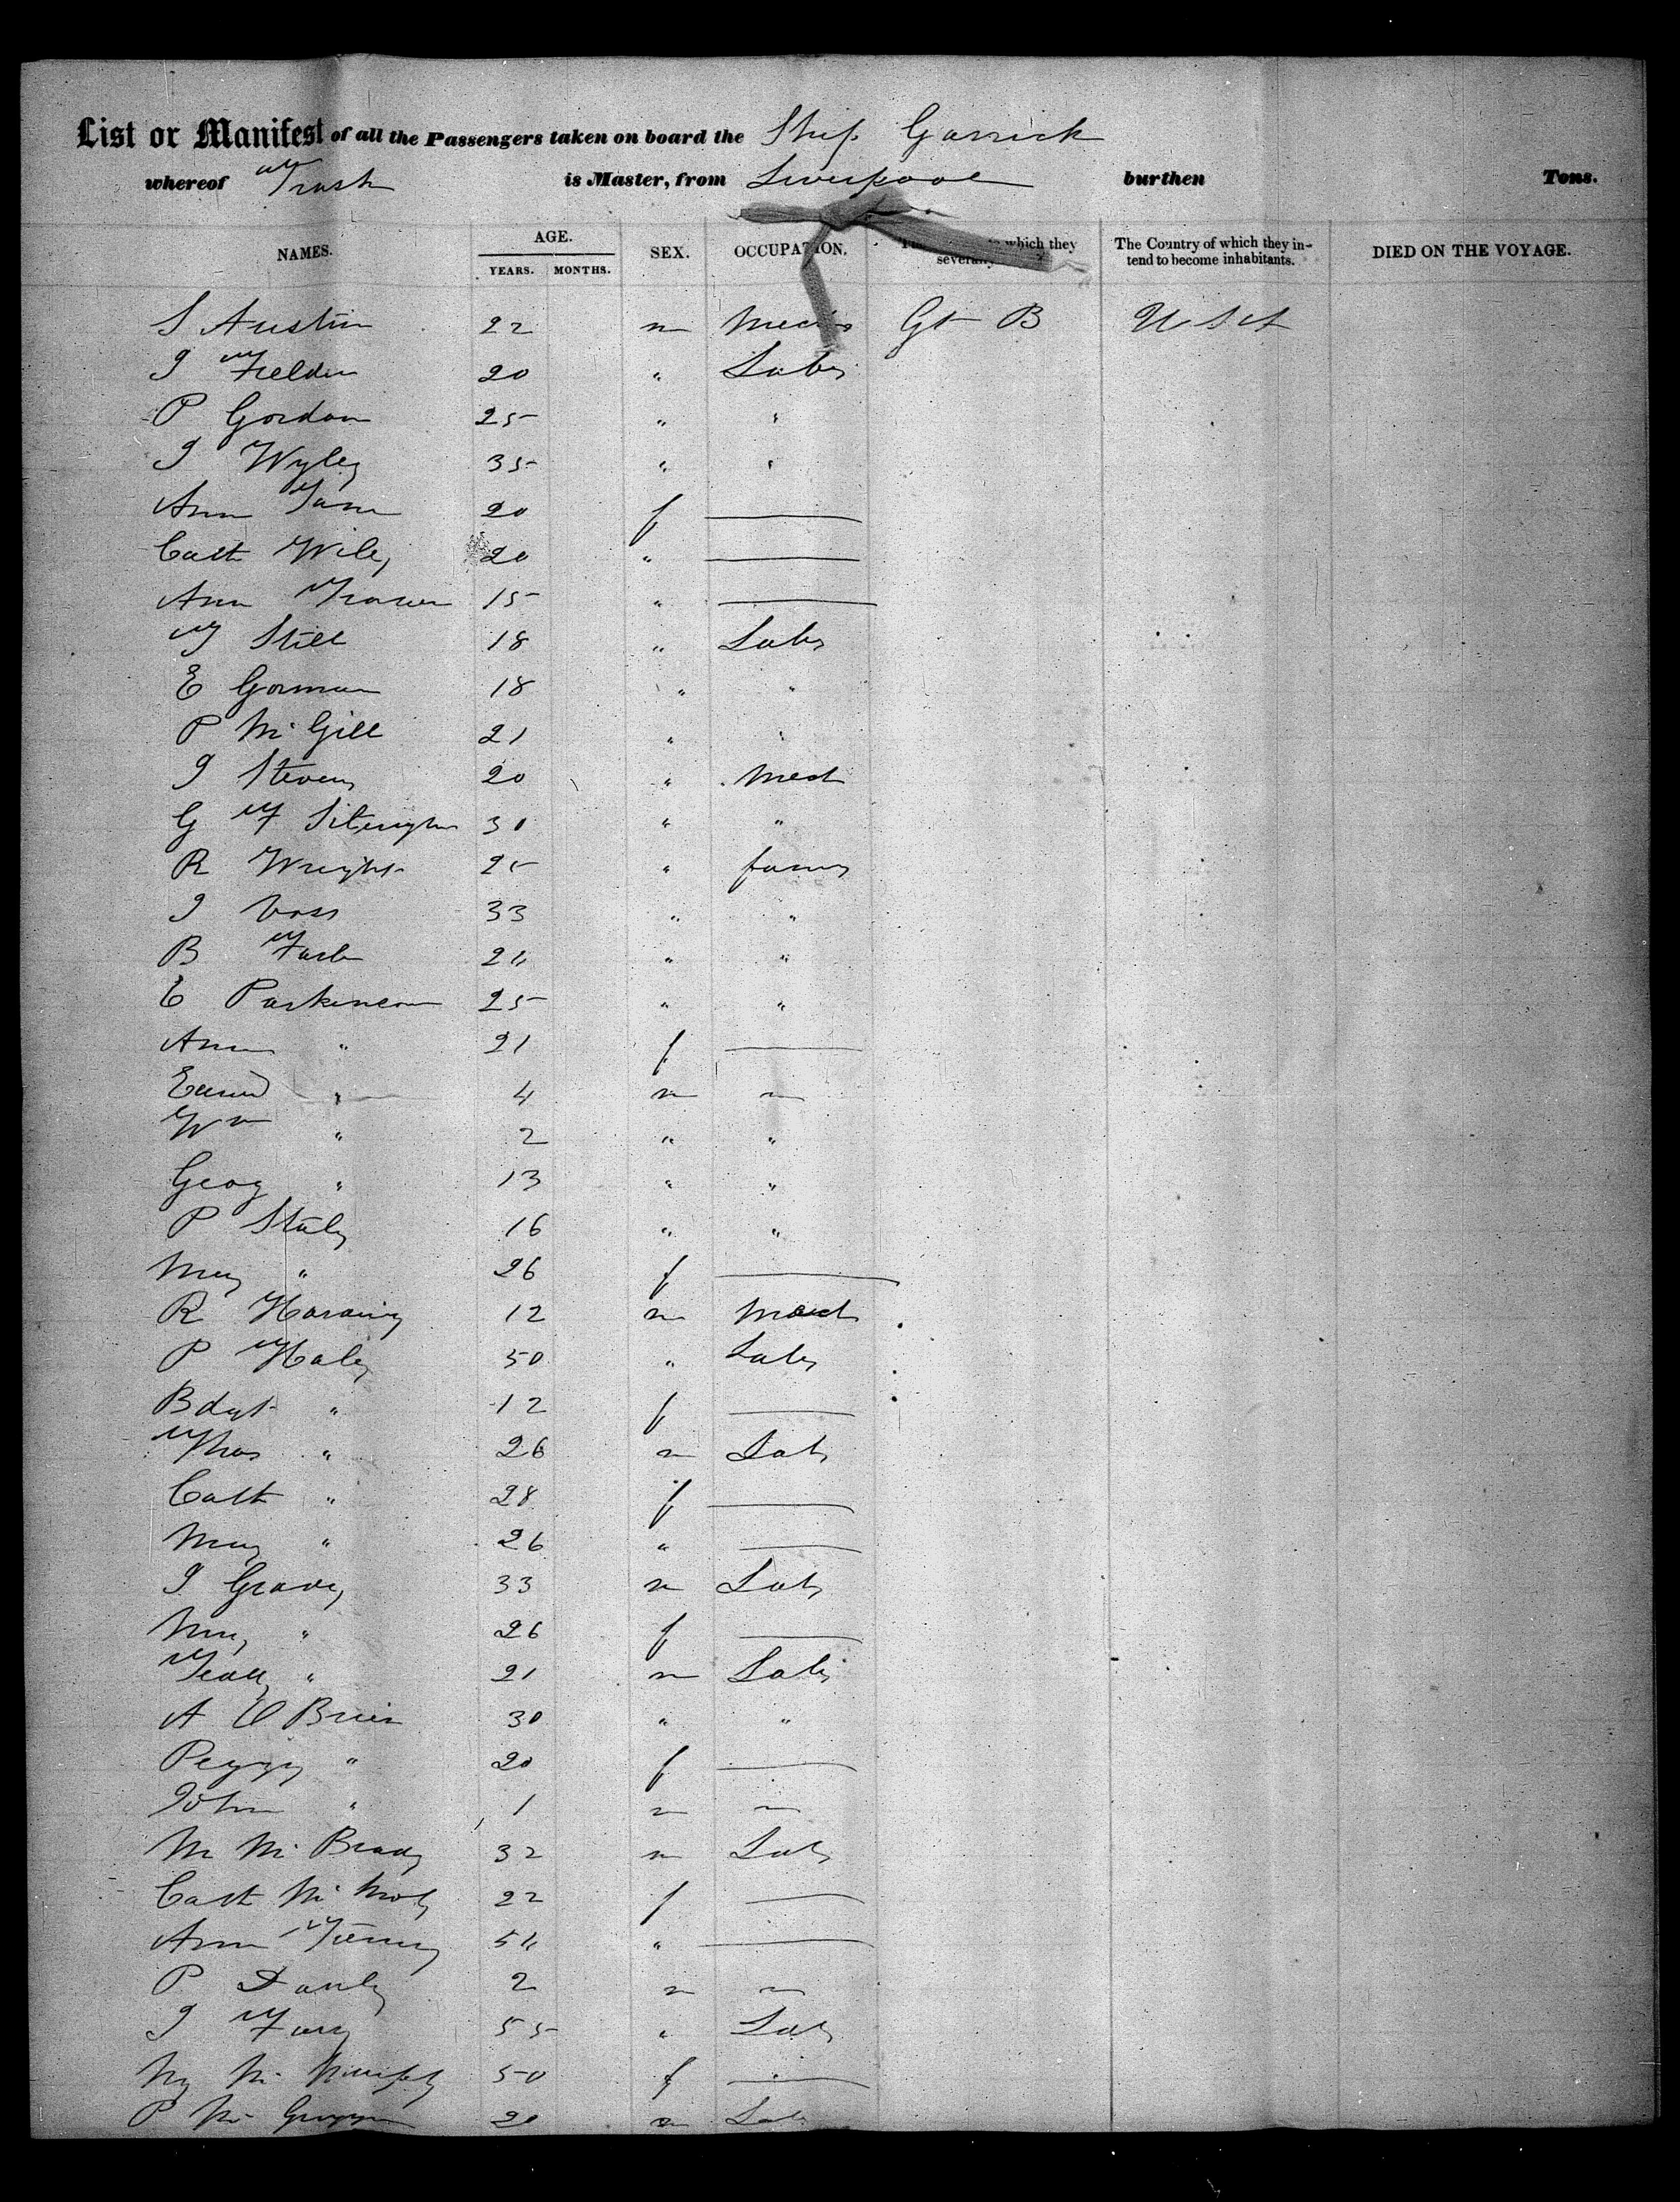 List or Manifest of all the Passengers taken on board the Ship Garrick
whereof Trask is Master, from Liverpool burthen Tons.
NAMES. AGE. YEARS. MONTHS. SEX. OCCUPATION. which they severally The Country of which they intend to become inhabitants. DIED ON THE VOYAGE.
S Austin 22 m Mech Gt B U S A
J Fielden 20 " Labr
P Gordon 25 " "
J Wyley 35 " "
Ann 20 f —
Cath Wiley 20 " —
Ann 15 " —
T Still 18 " Labr
E Gorman 18 " "
P Mc Gill 21 " "
J Stevens 20 " Mech
G F 30 " "
R Wright 25 " farmr
J Voss 33 " "
B 24 " "
E Parkinson 25 " "
Ann " 21 f —
" 4 m —
Wm " 2 " "
Geog " 13 " "
P Staly 16 " "
Mary " 26 f —
R Harding 12 m Mech
P Haley 50 " Labr
Bdgt " 12 f —
Thos " 26 m Labr
Cath " 28 f —
Mary " 26 " —
J 33 m Labr
Mary " 26 f —
" 21 m Labr
A O Brien 30 " "
Peggy " 20 f —
John " 1 m —
M Mc Brady 32 m Labr
Cath Mc 22 f —
Ann 54 " —
P 2 m —
J 55 " Labr
My Mc 50 f —
P Mc 20 m Labr